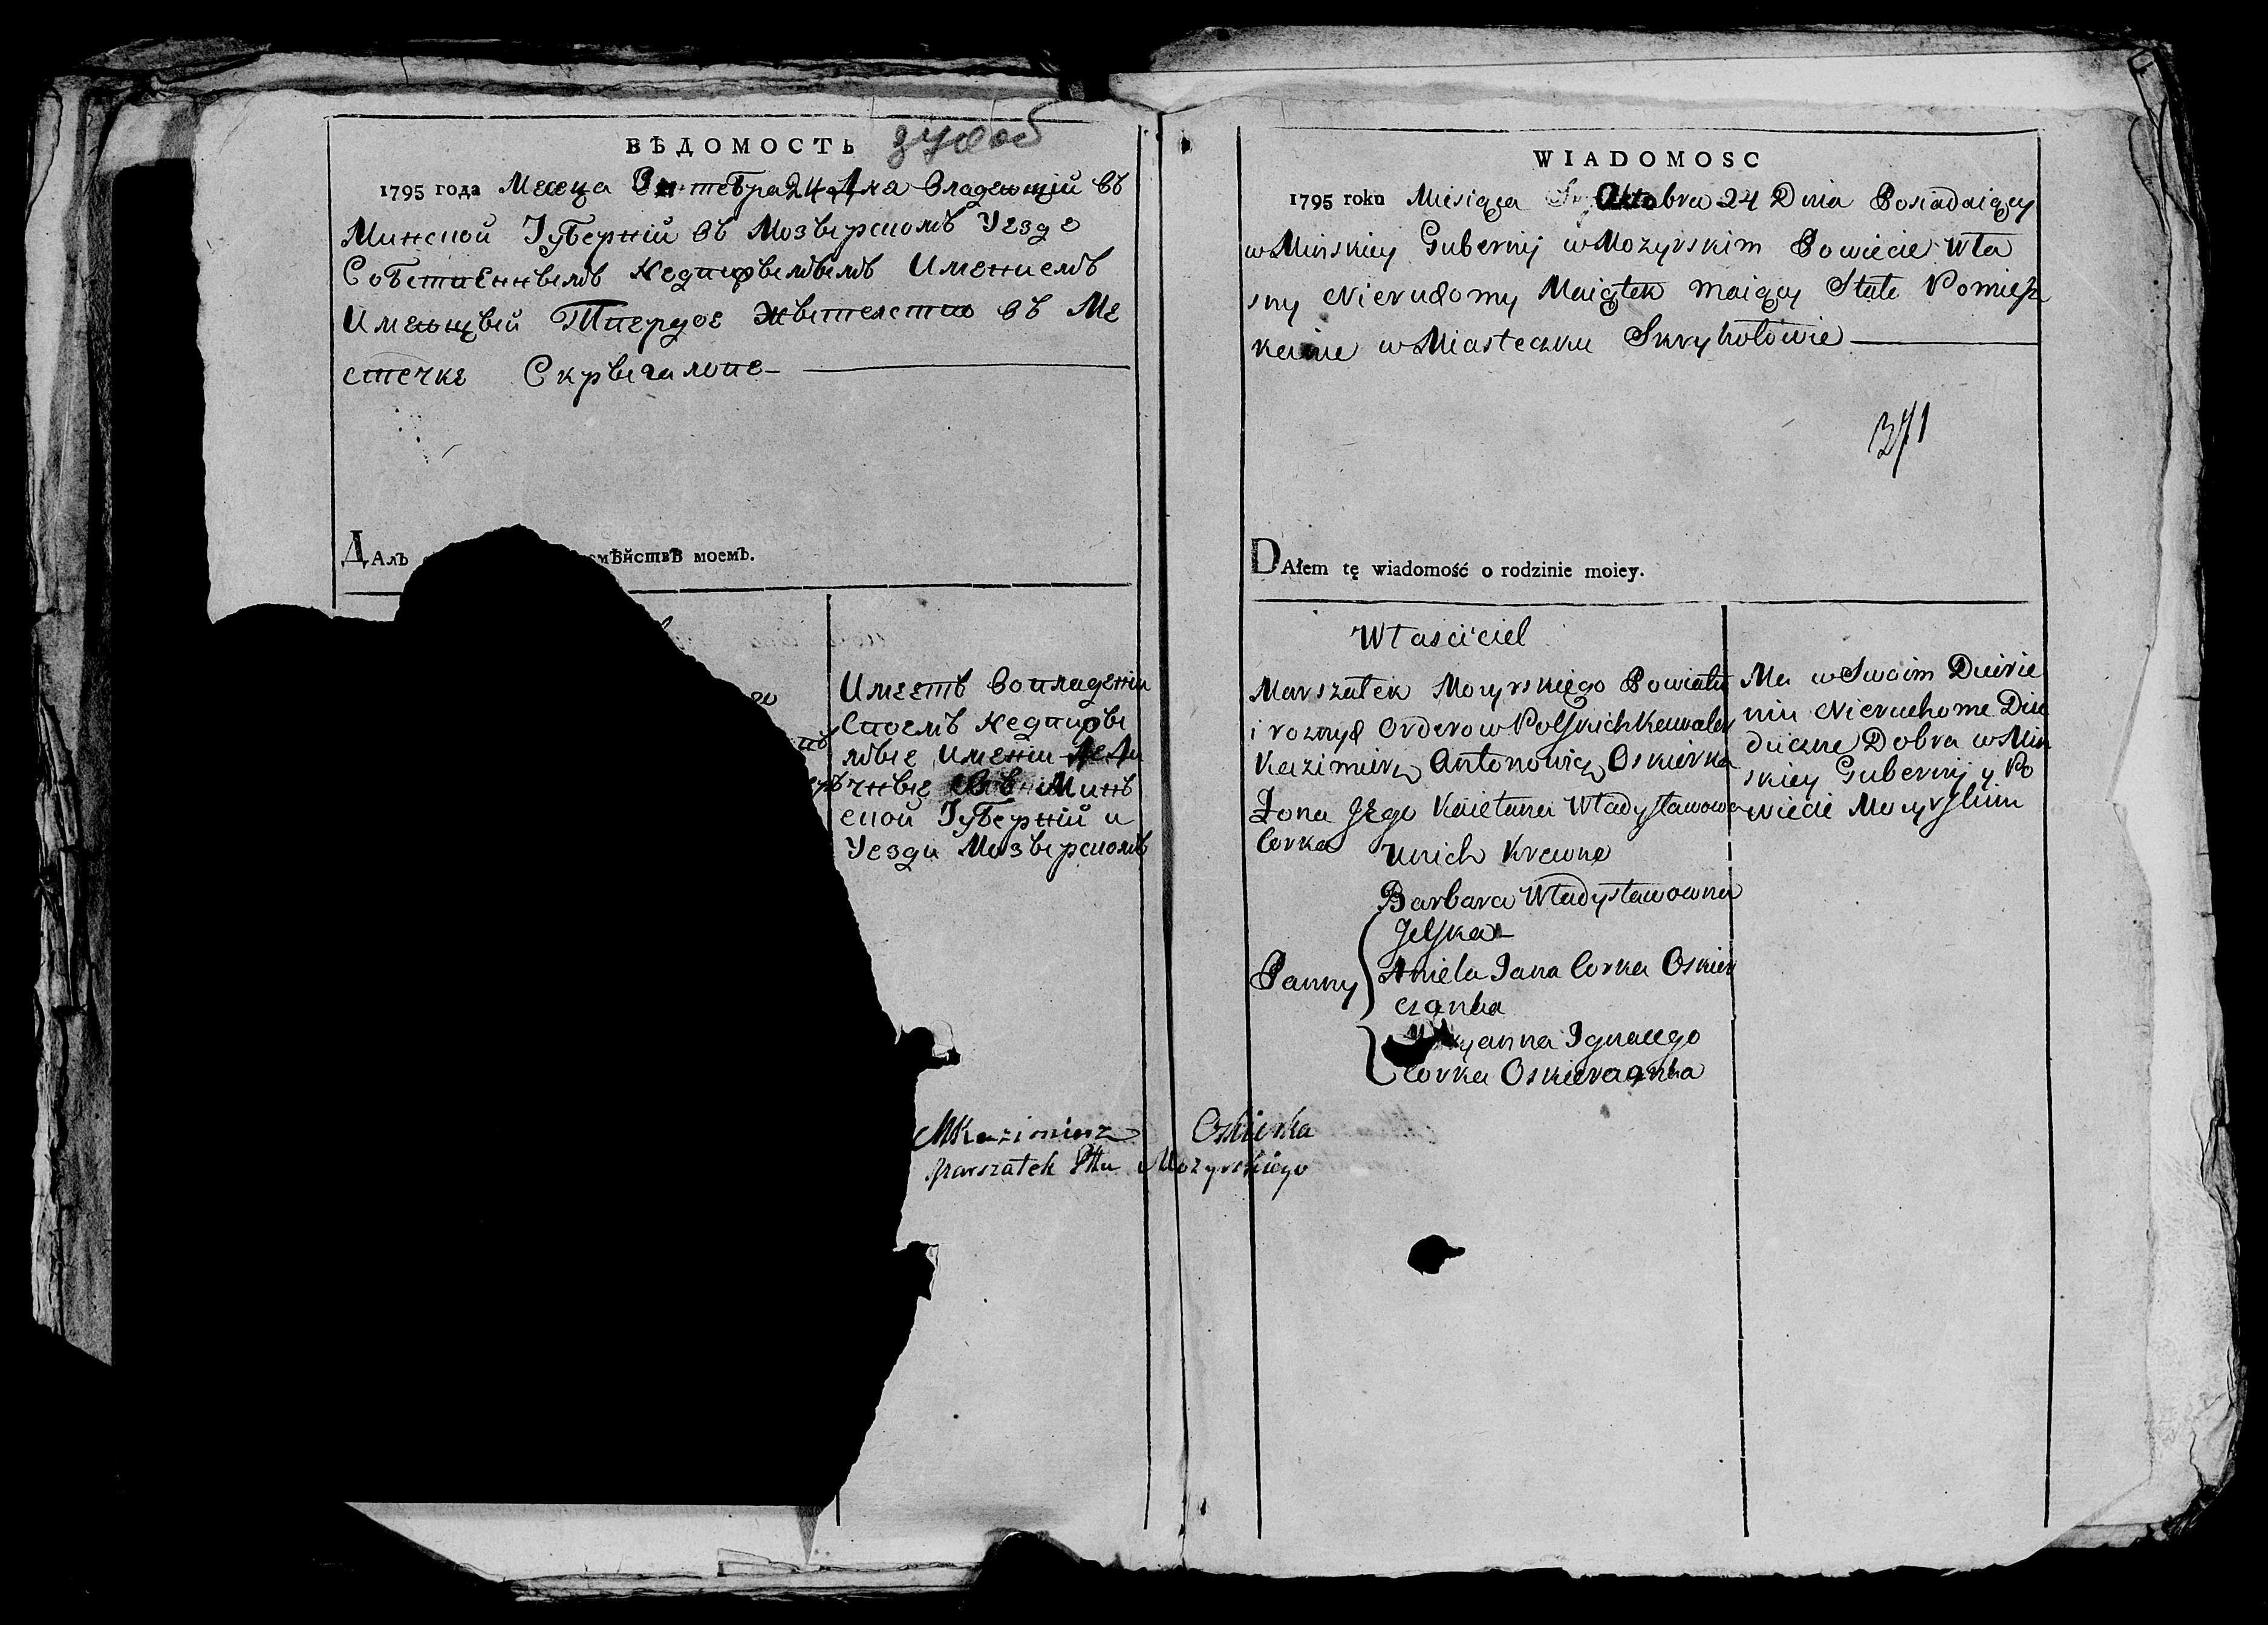 ВѢДОМОСТЬ
1795 года Месяца Октебра 24 Дня Владеющій въ
Минской Губерніи въ Мозырскомъ Уезде
Собственнымъ Недвижымымъ Имениемъ
Имеющый Твердое Жытелство въ Ме
стечке Скрыгалове
ДАлъ
емѣйствѣ моемъ.
Имеетъ во владеніи
Своемъ Недвижы
мые Имении Деди
чные въ Минъ
ской Губерніи и
Уезди Мозырскомъ
WIADOMOSC
1795 roku Miesiąca Oktobra 24 Dnia Posiadaiący
w Minskiey Gubernij w Mozyrskim Powiecie Wła
sny Nieruchomy Maiątek maiący Stałe Pomiesz
kanie w Miasteczku Skryhołowie
371
DAłem tę wiadomość o rodzinie moiey.
Własciciel
Marszałek Mozyrskiego Powiatu
i roznych Orderow Polskich Kawaler
Kazimierz Antonowicz Oskierka
Żona Jego Kaietana Władysławowa
Corka
Unich Krewne
Barbara Władysławowna
Jelska
Panny
Aniela Jana Corka Oskier
czanka
yanna Ignacego
Corka Oskierczanka
Ma w Swoim Dzierże
niu Nieruchome Dzie
dziczne Dobra w Min
skiey Gubernij y Po
wiecie Mozyrskim
Kazimierz Oskierka
Marszałek Pttu Mozyrskiego